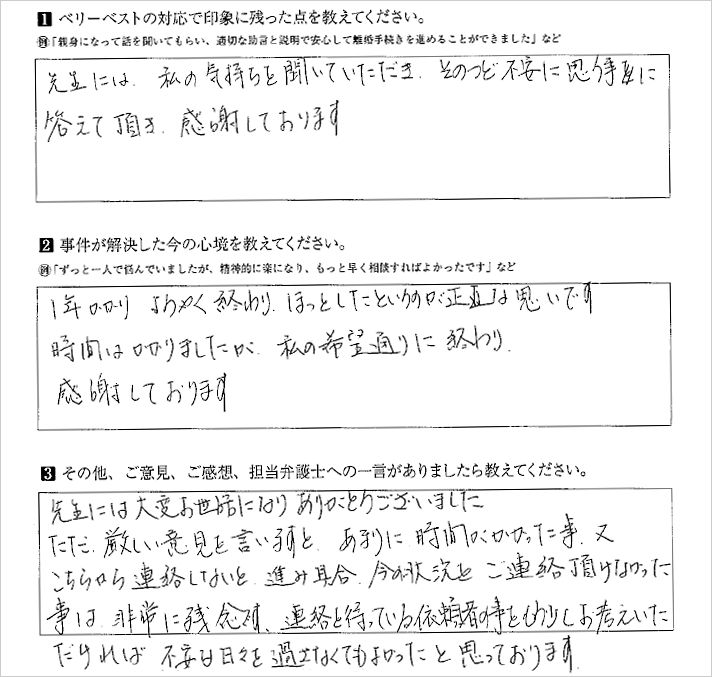 1 ベリーベストの対応で印象に残った点を教えてください。
例「親身になって話を聞いてもらい、適切な助言と説明で安心して離婚手続きを進めることができました」など
先生には、私の気持ちを聞いていただき、そのつど不安に思う事に
答えて頂き、感謝しております
2 事件が解決した今の心境を教えてください。
例「ずっと一人で悩んでいましたが、精神的に楽になり、もっと早く相談すればよかったです」など
1年かかり ようやく終わり、ほっとしたというのが正直な思いです
時間はかかりましたが、私の希望通りに終わり、
感謝しております
3 その他、ご意見、ご感想、担当弁護士への一言がありましたら教えてください。
先生には大変お世話になり ありがとうございました
ただ、厳しい意見を言いますと、あまりに時間がかかった事、又
こちらから連絡しないと、進み具合、今の状況を ご連絡頂けなかった
事は、非常に残念です、連絡を待っている依頼者の事をもう少しお考えいた
だければ 不安な日々を過さなくてもよかったと思っております